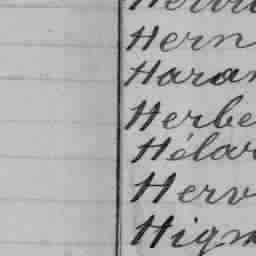 Hern
Haran
Herbe
Hélar
Herv
Hign